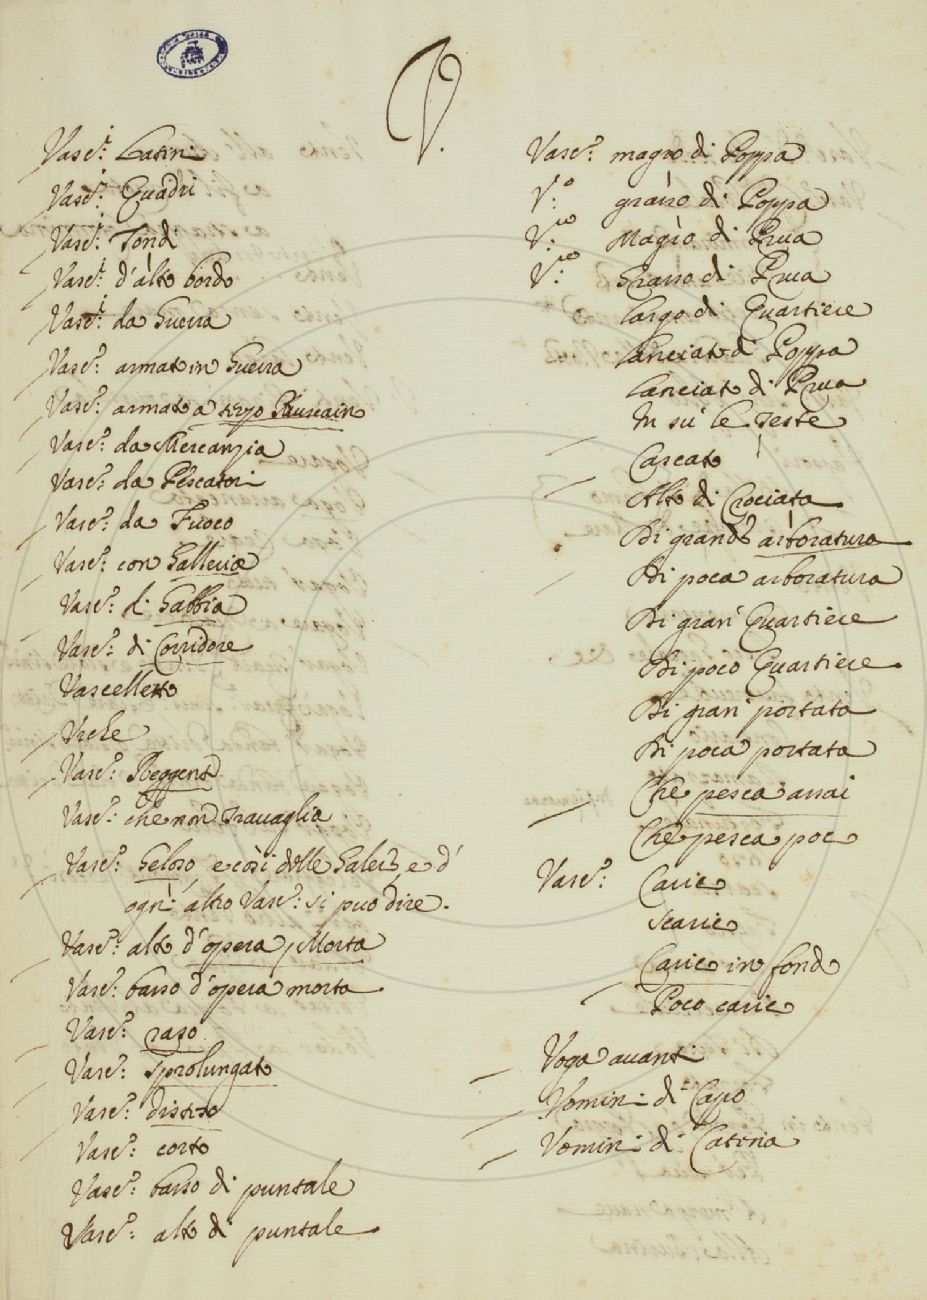 V.
Vasc.i Latini
Vasc.i Quadri
Vasc.i Tondi
Vasc.i d'alto bordo
Vasc.i da Guerra
Vasc.o armato in Guerra
Vasc.o armato a
Vasc.o da Mercanzia
Vasc.o da Pescatori
Vasc.o da Fuoco
Vasc.o con Galleria
Vasc.o di Gabbia
Vasc.o di Corridore
Vascelletto
Vasc.o Reggente
Vasc.o che non Travaglia
Vasc.o Geloso, e così delle Galere e d'
ogni altro Vasc.o si puo dire.
Vasc.o alto d'opera Morta
Vasc.o basso d'opera morta
Vasc.o raso
Vasc.o sprolungato
Vasc.o disteso
Vasc.o corto
Vasc.o basso di puntale
Vasc.o alto di puntale
Vasc.o magro di Poppa
V.o grasso di Poppa
V.lo Magro di Prua
V.lo Grasso di Prua
Largo di Quartiere
Lanciato di Poppa
Lanciato di Prua
In su le Teste
Cascato
Alto di Crociata
Di grand' arboratura
Di poca arboratura
Di gran Quartiere
Di poco Quartiere
Di gran portata
Di poca portata
Che pesca assai
Che pesca poco
Vasc.o Carico
Scarico
Carico in fondo
Poco carico
Voga avanti
Vomini di Capo
Vomini di Catena